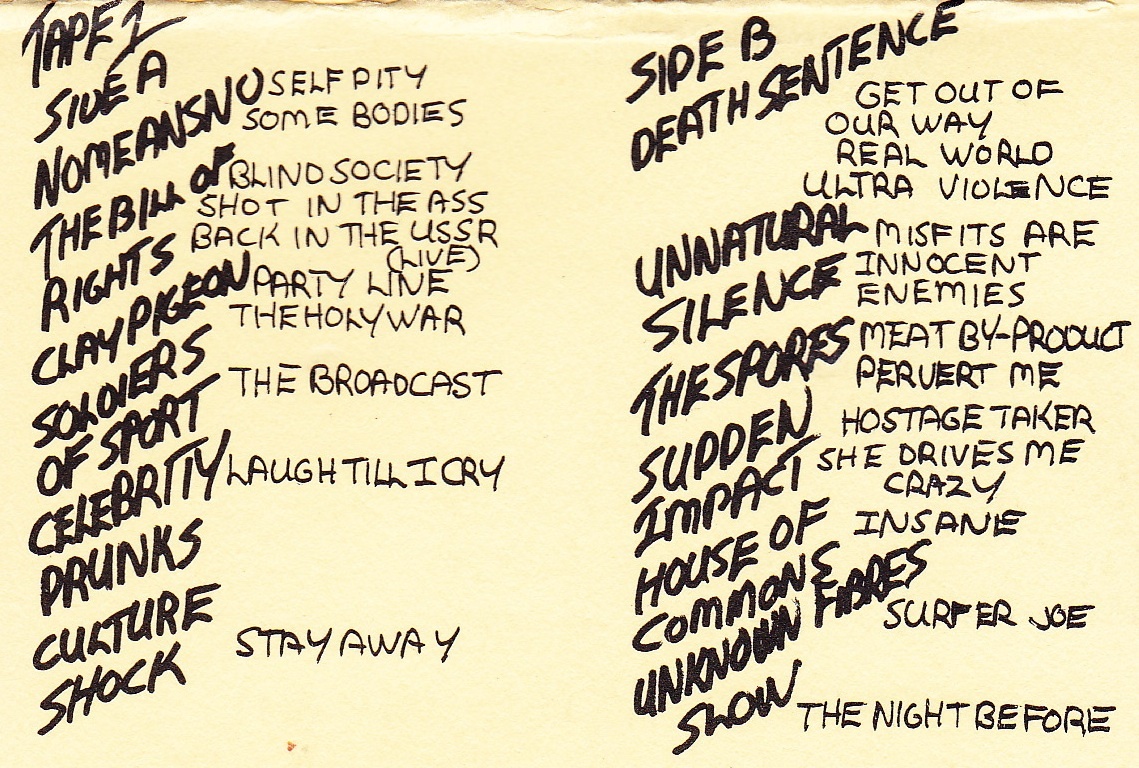 TAPE 1
SIDE A
NOMEANSNO SELF PITY
SOME BODIES
THE BILL OF BLIND SOCIETY
SHOT IN THE ASS
RIGHTS BACK IN THE USSR
(LIVE)
CLAY PIGEON PARTY LINE
THE HOLY WAR
SOLDIERS THE BROADCAST
OF SPORT
CELEBRITY LAUGH TILL I CRY
DRUNKS
CULTURE STAY AWAY
SHOCK
SIDE B
DEATH SENTENCE
GET OUT OF
OUR WAY
REAL WORLD
ULTRA VIOLENCE
UNNATURAL MISFITS ARE
SILENCE INNOCENT
ENEMIES
THE SPORES MEAT BY-PRODUCT
PERVERT ME
SUDDEN HOSTAGE TAKER
IMPACT SHE DRIVES ME
CRAZY
HOUSE OF INSANE
COMMONS
UNKNOWN FIBRES SURFER JOE
SLOW THE NIGHT BEFORE